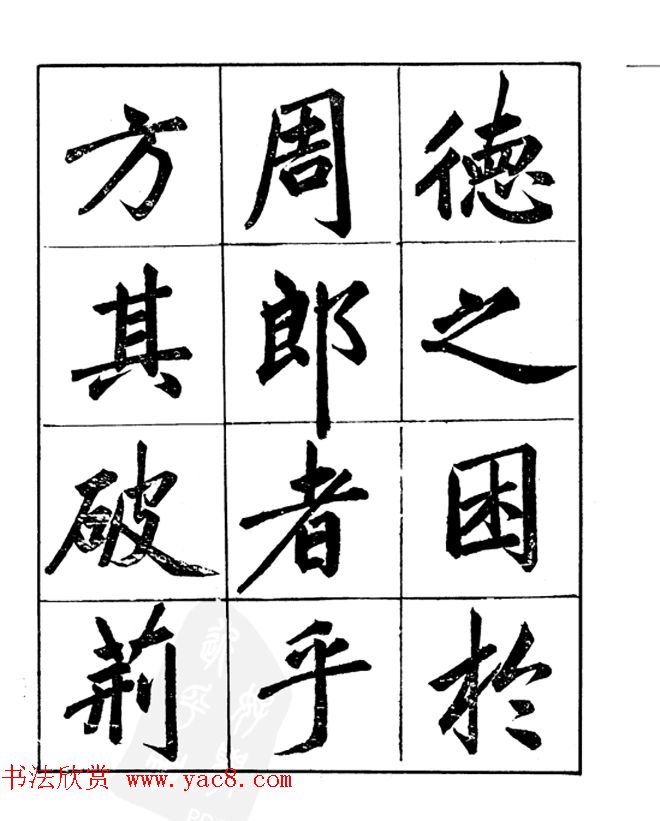 德之困於
周郎者乎
方其破荆
书法欣赏 www.yac8.com